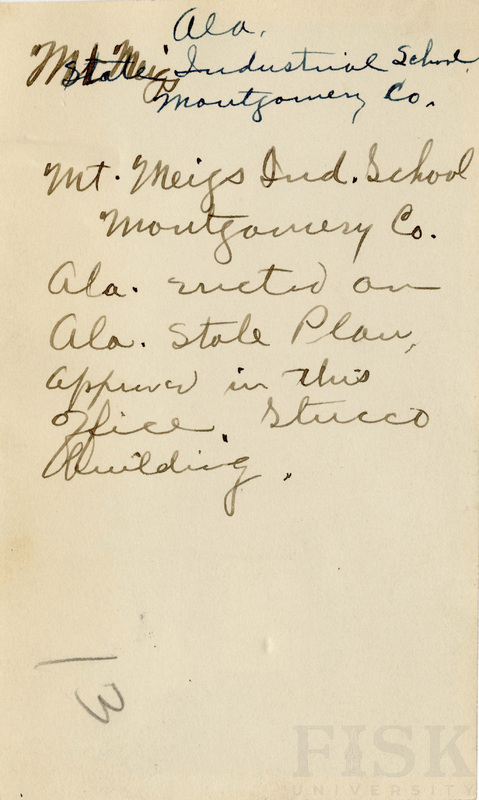 Ala.
Mt Meigs
State Industrial School,
Montgomery Co.
Mt. Meigs Ind. School
Montgomery Co.
Ala. erected on
Ala. State Plan,
approved in this
Office. Stucco
Building.
13
FISK
UNIVERSITY